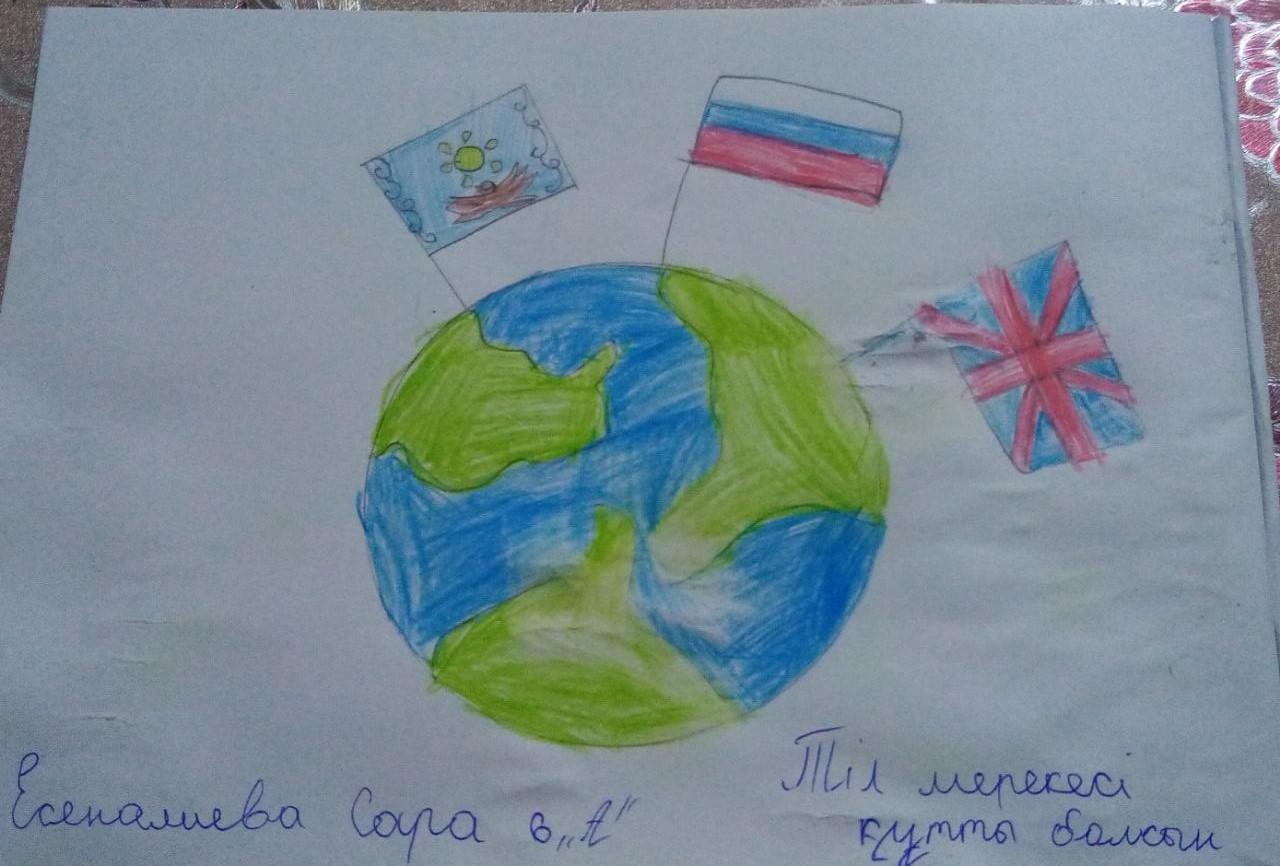 Есеналиева Сара 6 „А"
Тіл мерекесі
құтты болсын